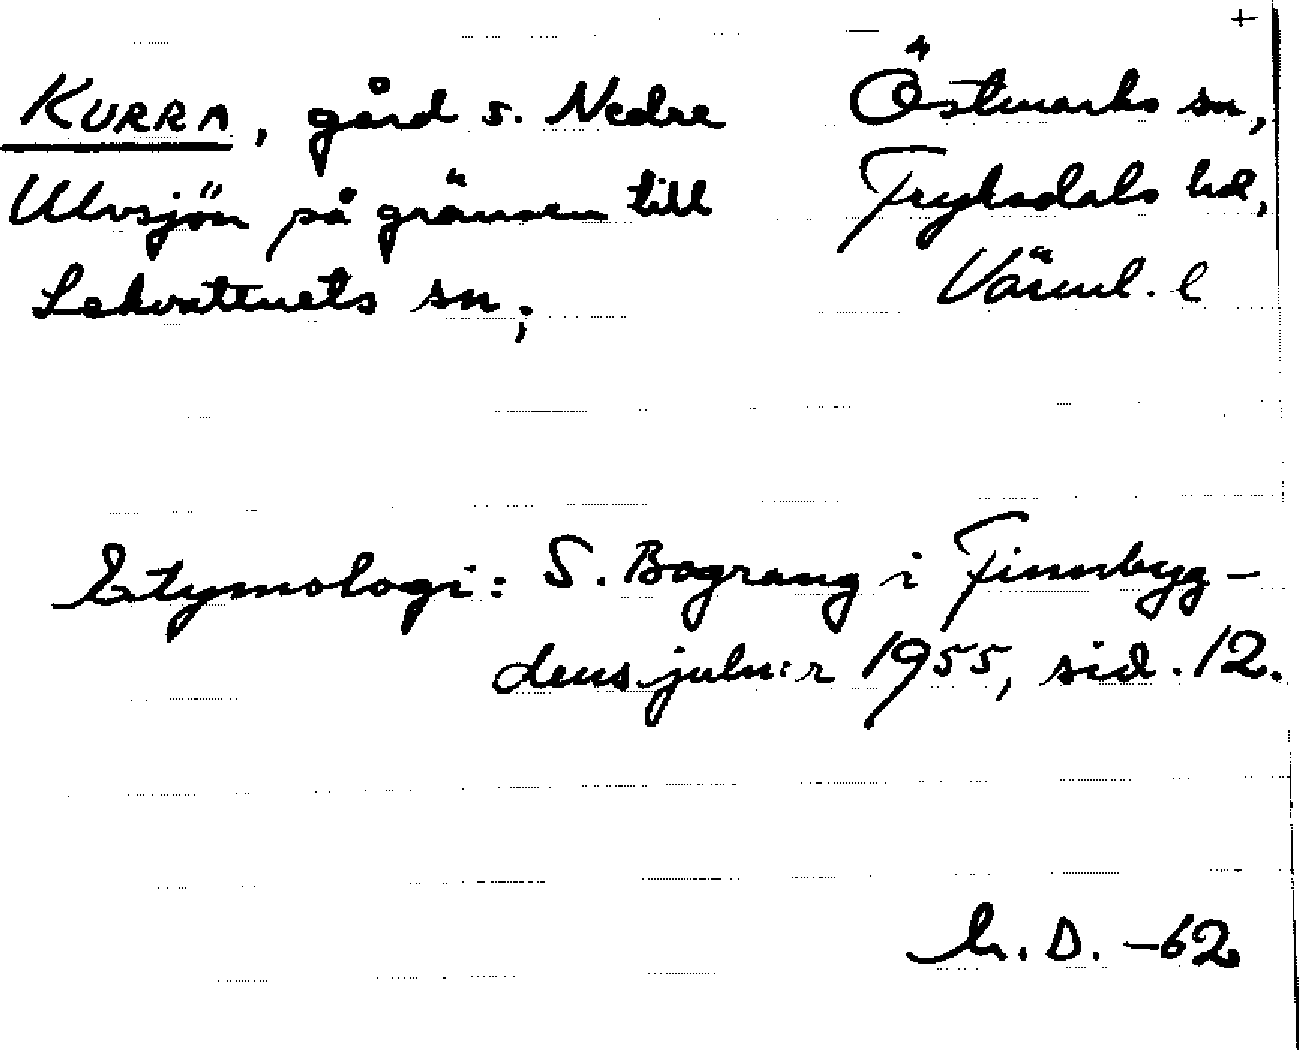 +
KURRA, gård s. Nedre
Ulvsjön på gränsen till
Lekvattnets sn;
Östmarks sn,
Fryksdals hd,
Värml. l
Etymologi: S. Bograng i Finnbyg-
dens juln:r 1955, sid. 12.
h. D. -62